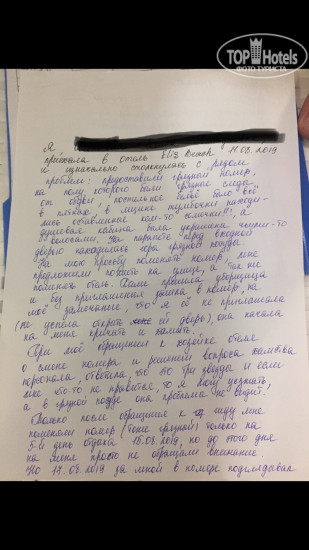 TOP Hotels
ФОТО ТУРИСТА
Я
приехала в отель Eliz Beach 11.08.2019
и изначально столкнулась с рядом
проблем: предоставили грязный номер,
на полу которого были грязные следы
от обуви, постельное бельё было всё
в пятнах, в ящике тумбочки находи-
лись оставленные кем-то
душевая кабина была украшена чьими-то
волосами. На пороге перед входной
дверью находилась гора грязной посуды.
На мою просьбу поменять номер, мне
предложили пожить на улице, а так же
поменять отель. Сами пришла уборщица
и без приглашения зашла в номер, на
моё замечание, что я её не приглашала
(не успела открыть ей дверь), она начала
на меня кричать и
При моём обращении к хозяйке отеля
о смене номера и решении вопроса
персонала, ответила, что это три звезды и если
мне что-то не нравится, то я могу уезжать
и в грязной посуде она проблемы не видит!
Только после обращения к гиду мне
поменяли номер (тоже грязный) только на
5-й день отдыха 15.08.2019, но до этого дня
на меня просто не обращали внимание.
Но 18.08.2019 за мной в номере подглядывал